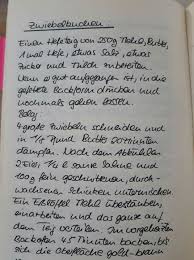 Zwiebelkuchen
Einen Hefeteig von 250g Mehl, Butter,
1 mal Hefe, etwas Salz, etwas
Zucker und Milch zubereiten.
Wenn er gut aufgegangen ist, in die
gefettete Backform drücken und
nochmals gehen lassen.
Belag:
4 große Zwiebeln schneiden und
in Butter 20 Minuten
dampfen. Nach dem Abkühlen
2 Eier, 1/4 l saure Sahne und
100g klein geschnittenen, durch-
wachsenen Schinken untermischen.
Ein Eßlöffel Mehl überstäuben,
einarbeiten und das ganze auf
dem Teig verteilen. Im vorgeheizten
Backofen 45 Minuten backen, bis
sich die Oberfläche gold-braun